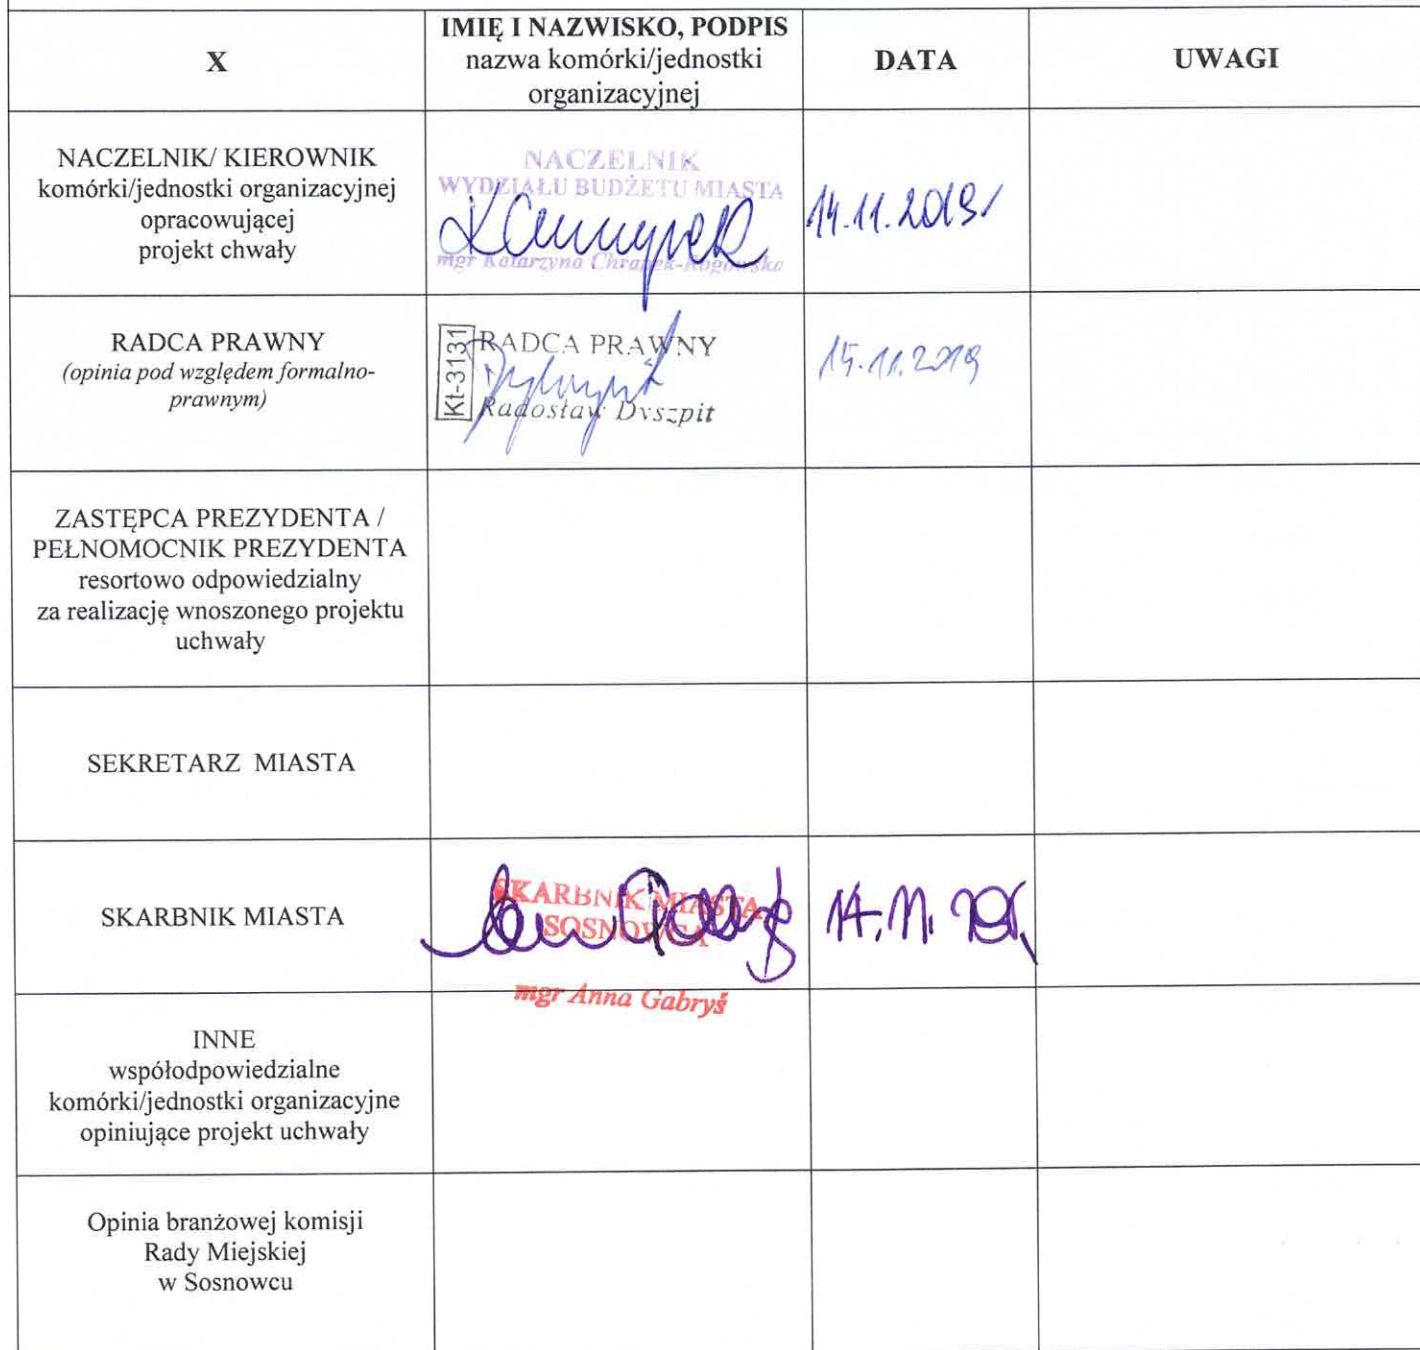 X
IMIĘ I NAZWISKO, PODPIS
nazwa komórki/jednostki
organizacyjnej
DATA
UWAGI
NACZELNIK/ KIEROWNIK
komórki/jednostki organizacyjnej
opracowującej
projekt chwały
NACZELNIK
WYDZIAŁU BUDŻETU MIASTA
mgr Katarzyna Chrapek-Rogowska
14.11.2019
RADCA PRAWNY
(opinia pod względem formalno-
prawnym)
Kt-3131
RADCA PRAWNY
Radosław Dyszpit
15.11.2019
ZASTĘPCA PREZYDENTA /
PEŁNOMOCNIK PREZYDENTA
resortowo odpowiedzialny
za realizację wnoszonego projektu
uchwały
SEKRETARZ MIASTA
SKARBNIK MIASTA
SKARBNIK MIASTA
SOSNOWCA
mgr Anna Gabryś
14.11.
INNE
współodpowiedzialne
komórki/jednostki organizacyjne
opiniujące projekt uchwały
Opinia branżowej komisji
Rady Miejskiej
w Sosnowcu